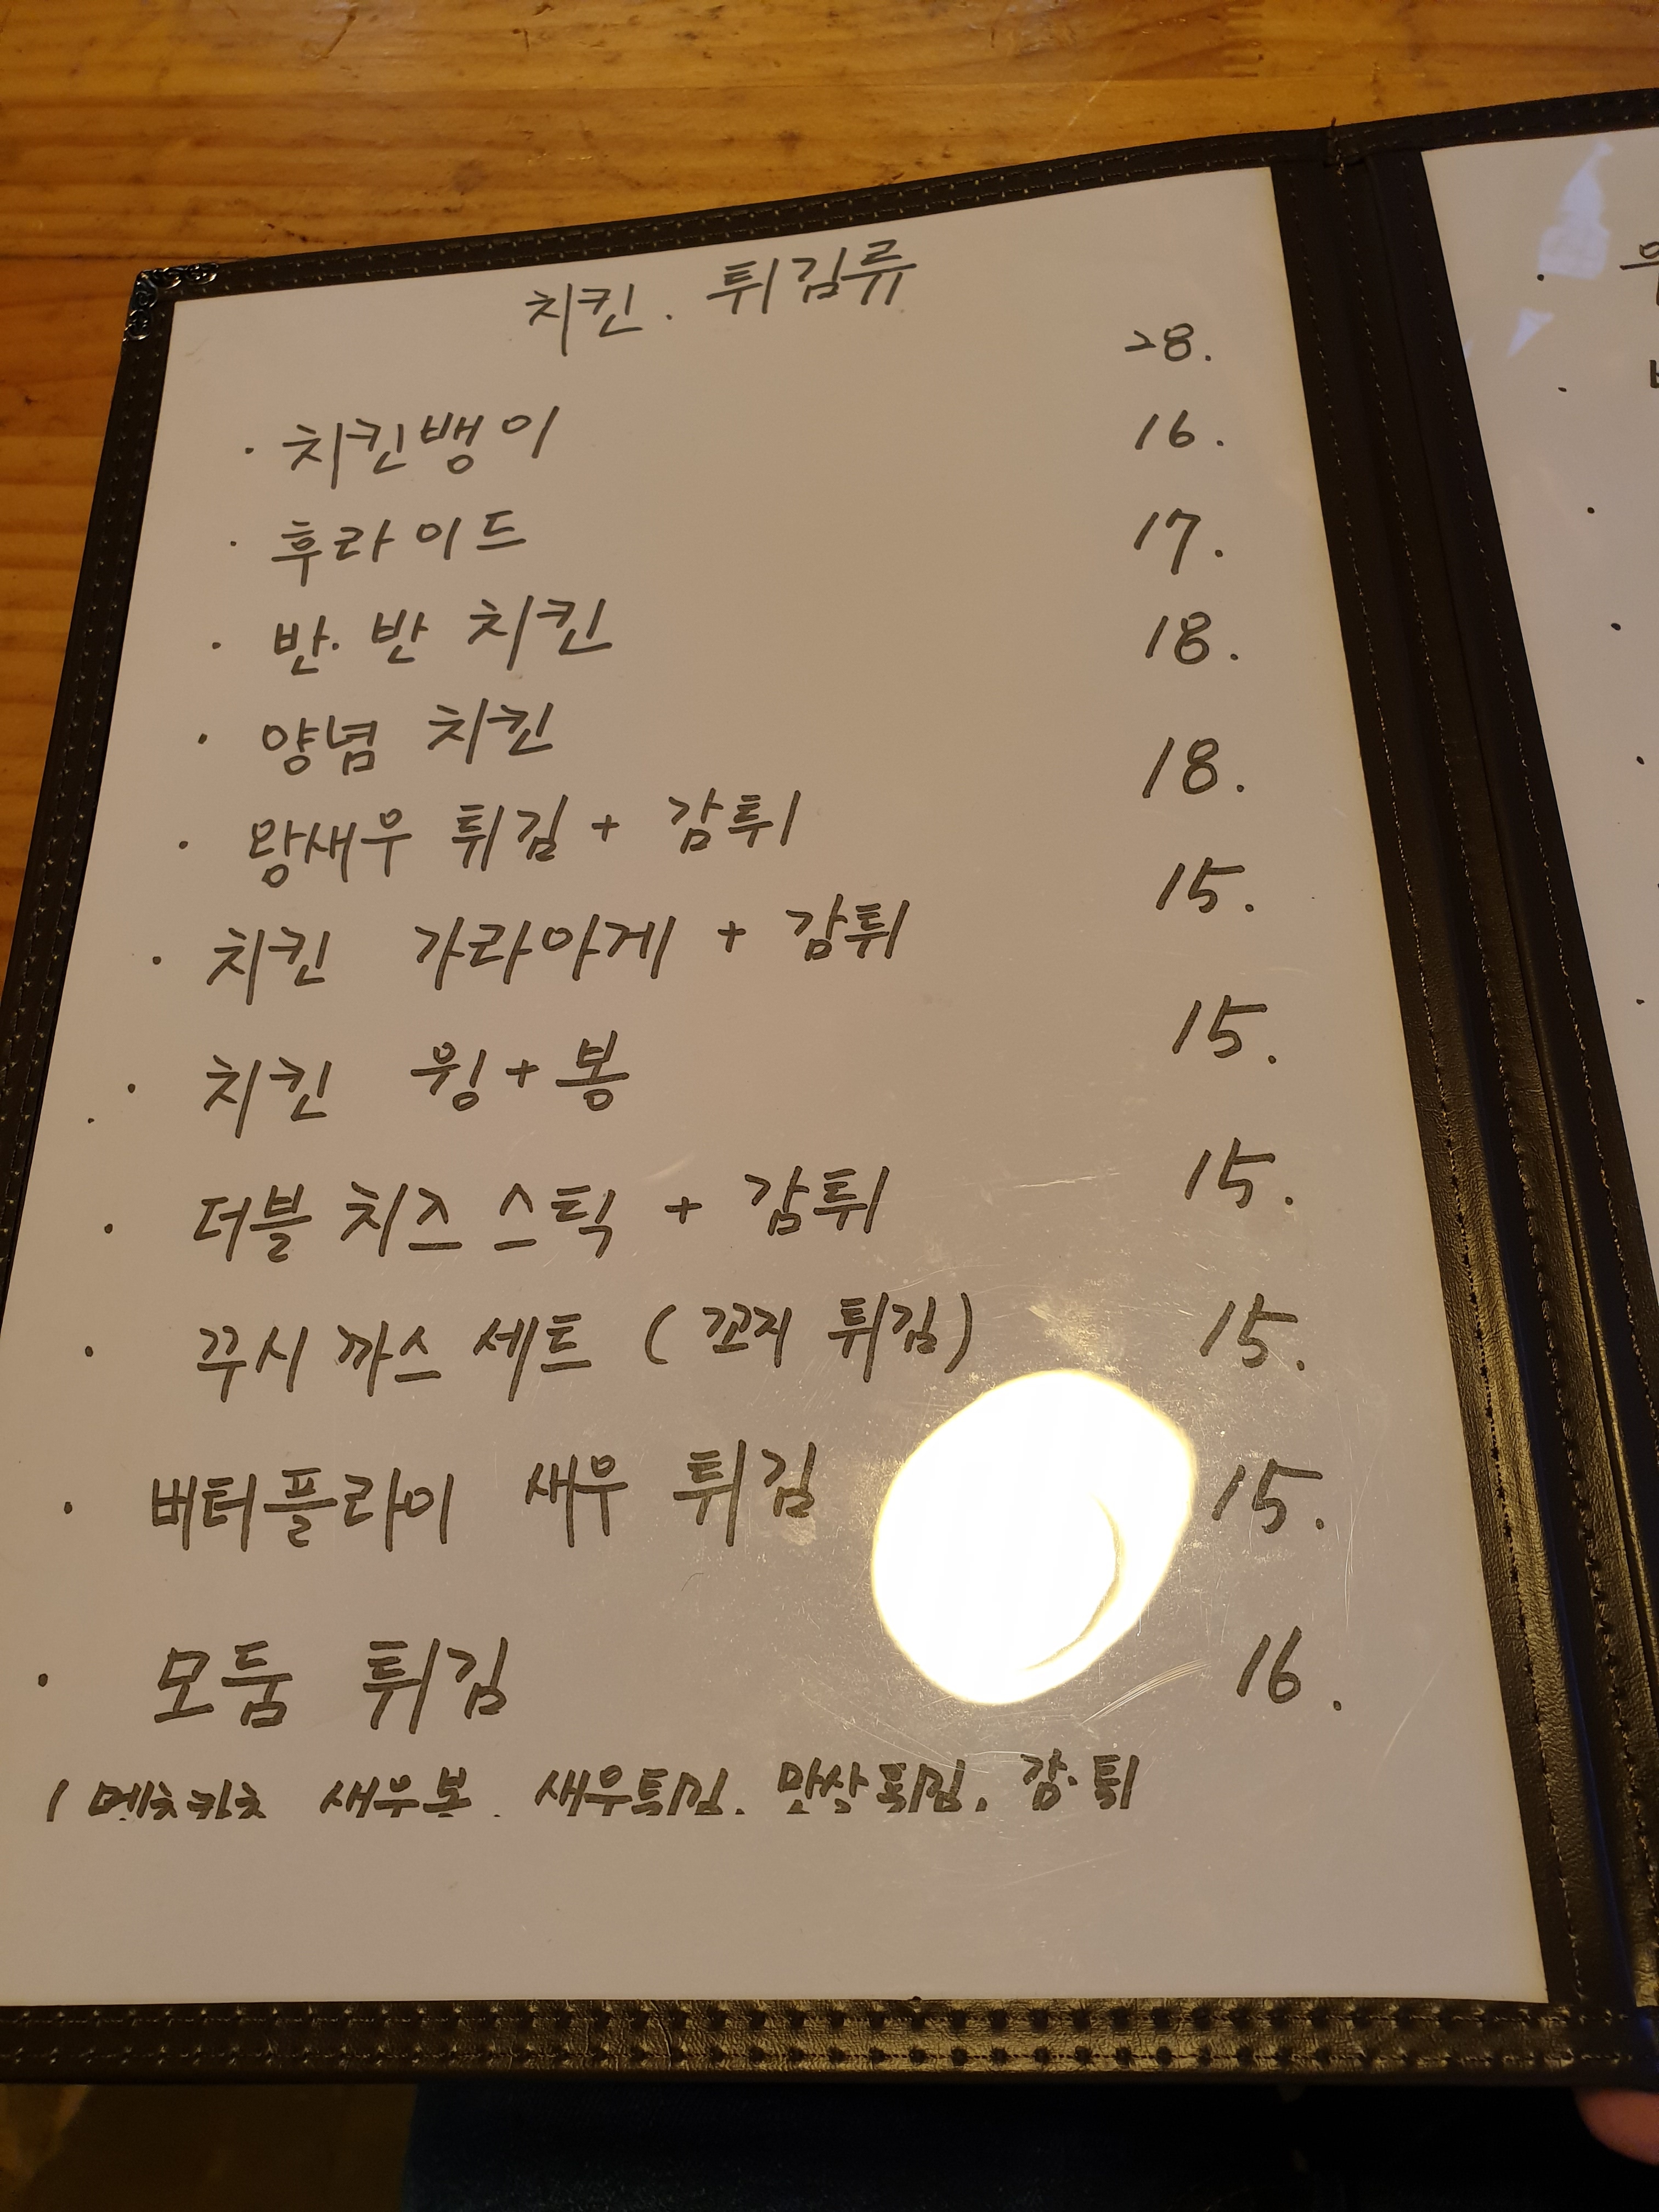 치킨. 튀김류
· 치킨뱅이 28.
· 후라이드 16.
· 반·반 치킨 17.
· 양념 치킨 18.
· 왕새우 튀김 + 감튀 18.
· 치킨 가라아게 + 감튀 15.
· 치킨 윙+봉 15.
· 더블 치즈 스틱 + 감튀 15.
· 꾸시 까스 세트 (꼬지 튀김) 15.
· 버터플라이 새우 튀김 15.
· 모둠 튀김 16.
( 멘치카츠 새우볼. 새우튀김. 맛살튀김. 감·튀